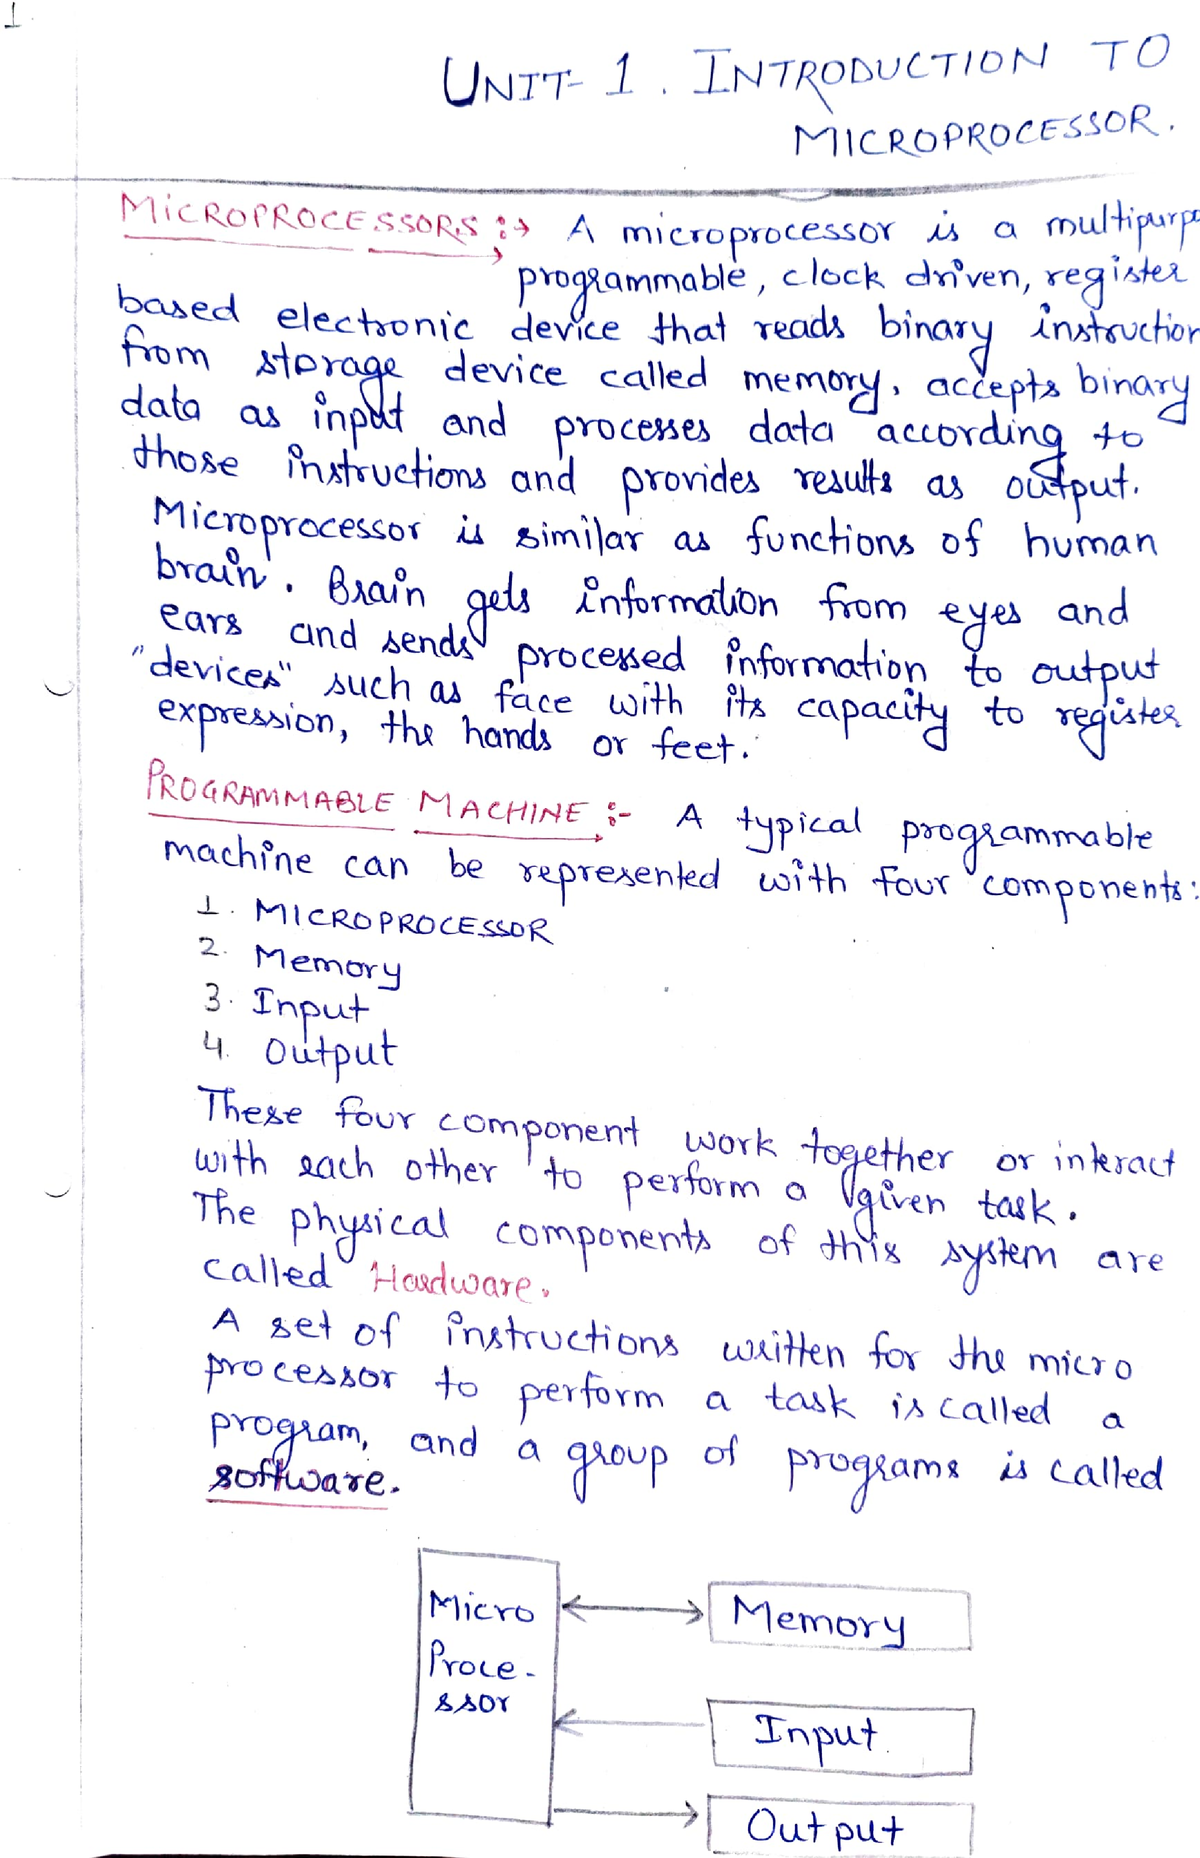 1
UNIT- 1. INTRODUCTION TO
MICROPROCESSOR.
MICROPROCESSORS :→ A microprocessor is a multipurpo
programmable, clock driven, register
based electronic device that reads binary instruction
from storage device called memory, accepts binary
data as input and processes data according to
those instructions and provides results as output.
Microprocessor is similar as functions of human
brain. Brain gets information from eyes and
ears and sends processed information to output
"devices" such as face with its capacity to register
expression, the hands or feet.
PROGRAMMABLE MACHINE :- A typical programmable
machine can be represented with four components:
1. MICROPROCESSOR
2. Memory
3. Input
4. Output
These four component work together or interact
with each other to perform a given task.
The physical components of this system are
called Hardware.
A set of instructions written for the micro
processor to perform a task is called a
program, and a group of programs is called
software.
Micro
Proce-
ssor
Memory
Input
Output